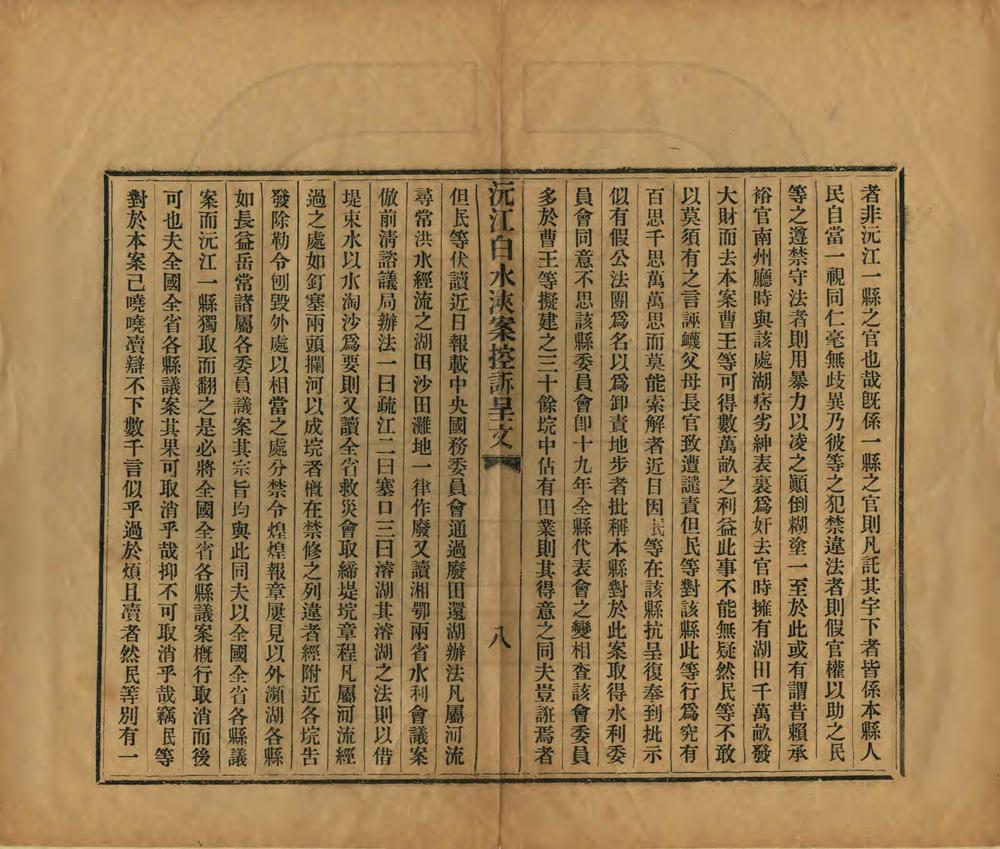 者非沅江一縣之官也哉旣係一縣之官則凡託其宇下者皆係本縣人
民自當一視同仁毫無歧異乃彼等之犯禁違法者則假官權以助之民
等之遵禁守法者則用暴力以凌之顚倒糊塗一至於此或有謂昔賴承
裕官南州廳時與該處湖痞劣紳表裏爲奸去官時擁有湖田千萬畝發
大財而去本案曹王等可得數萬畝之利益此事不能無疑然民等不敢
以莫須有之言誣衊父母長官致遭譴責但民等對該縣此等行爲究有
百思千思萬萬思而莫能索解者近日因民等在該縣抗呈復奉到批示
似有假公法團爲名以爲卸責地步者批稱本縣對於此案取得水利委
員會同意不思該縣委員會卽十九年全縣代表會之變相查該會委員
多於曹王等擬建之三十餘垸中佔有田業則其得意之同夫豈誑焉者
沅江白水浹案控訴呈文
八
但民等伏讀近日報載中央國務委員會通過廢田還湖辦法凡屬河流
尋常洪水經流之湖田沙田灘地一律作廢又讀湘鄂兩省水利會議案
倣前清諮議局辦法一曰疏江二曰塞口三曰濬湖其濬湖之法則以借
堤束水以水淘沙爲要則又讀全省救災會取締堤垸章程凡屬河流經
過之處如釘塞兩頭攔河以成垸者槪在禁修之列違者經附近各垸告
發除勒令刨毀外處以相當之處分禁令煌煌報章屢見以外瀕湖各縣
如長益岳常諸屬各委員議案其宗旨均與此同夫以全國全省各縣議
案而沅江一縣獨取而翻之是必將全國全省各縣議案槪行取消而後
可也夫全國全省各縣議案其果可取消乎哉抑不可取消乎哉竊民等
對於本案已嘵嘵瀆辯不下數千言似乎過於煩且瀆者然民等別有一